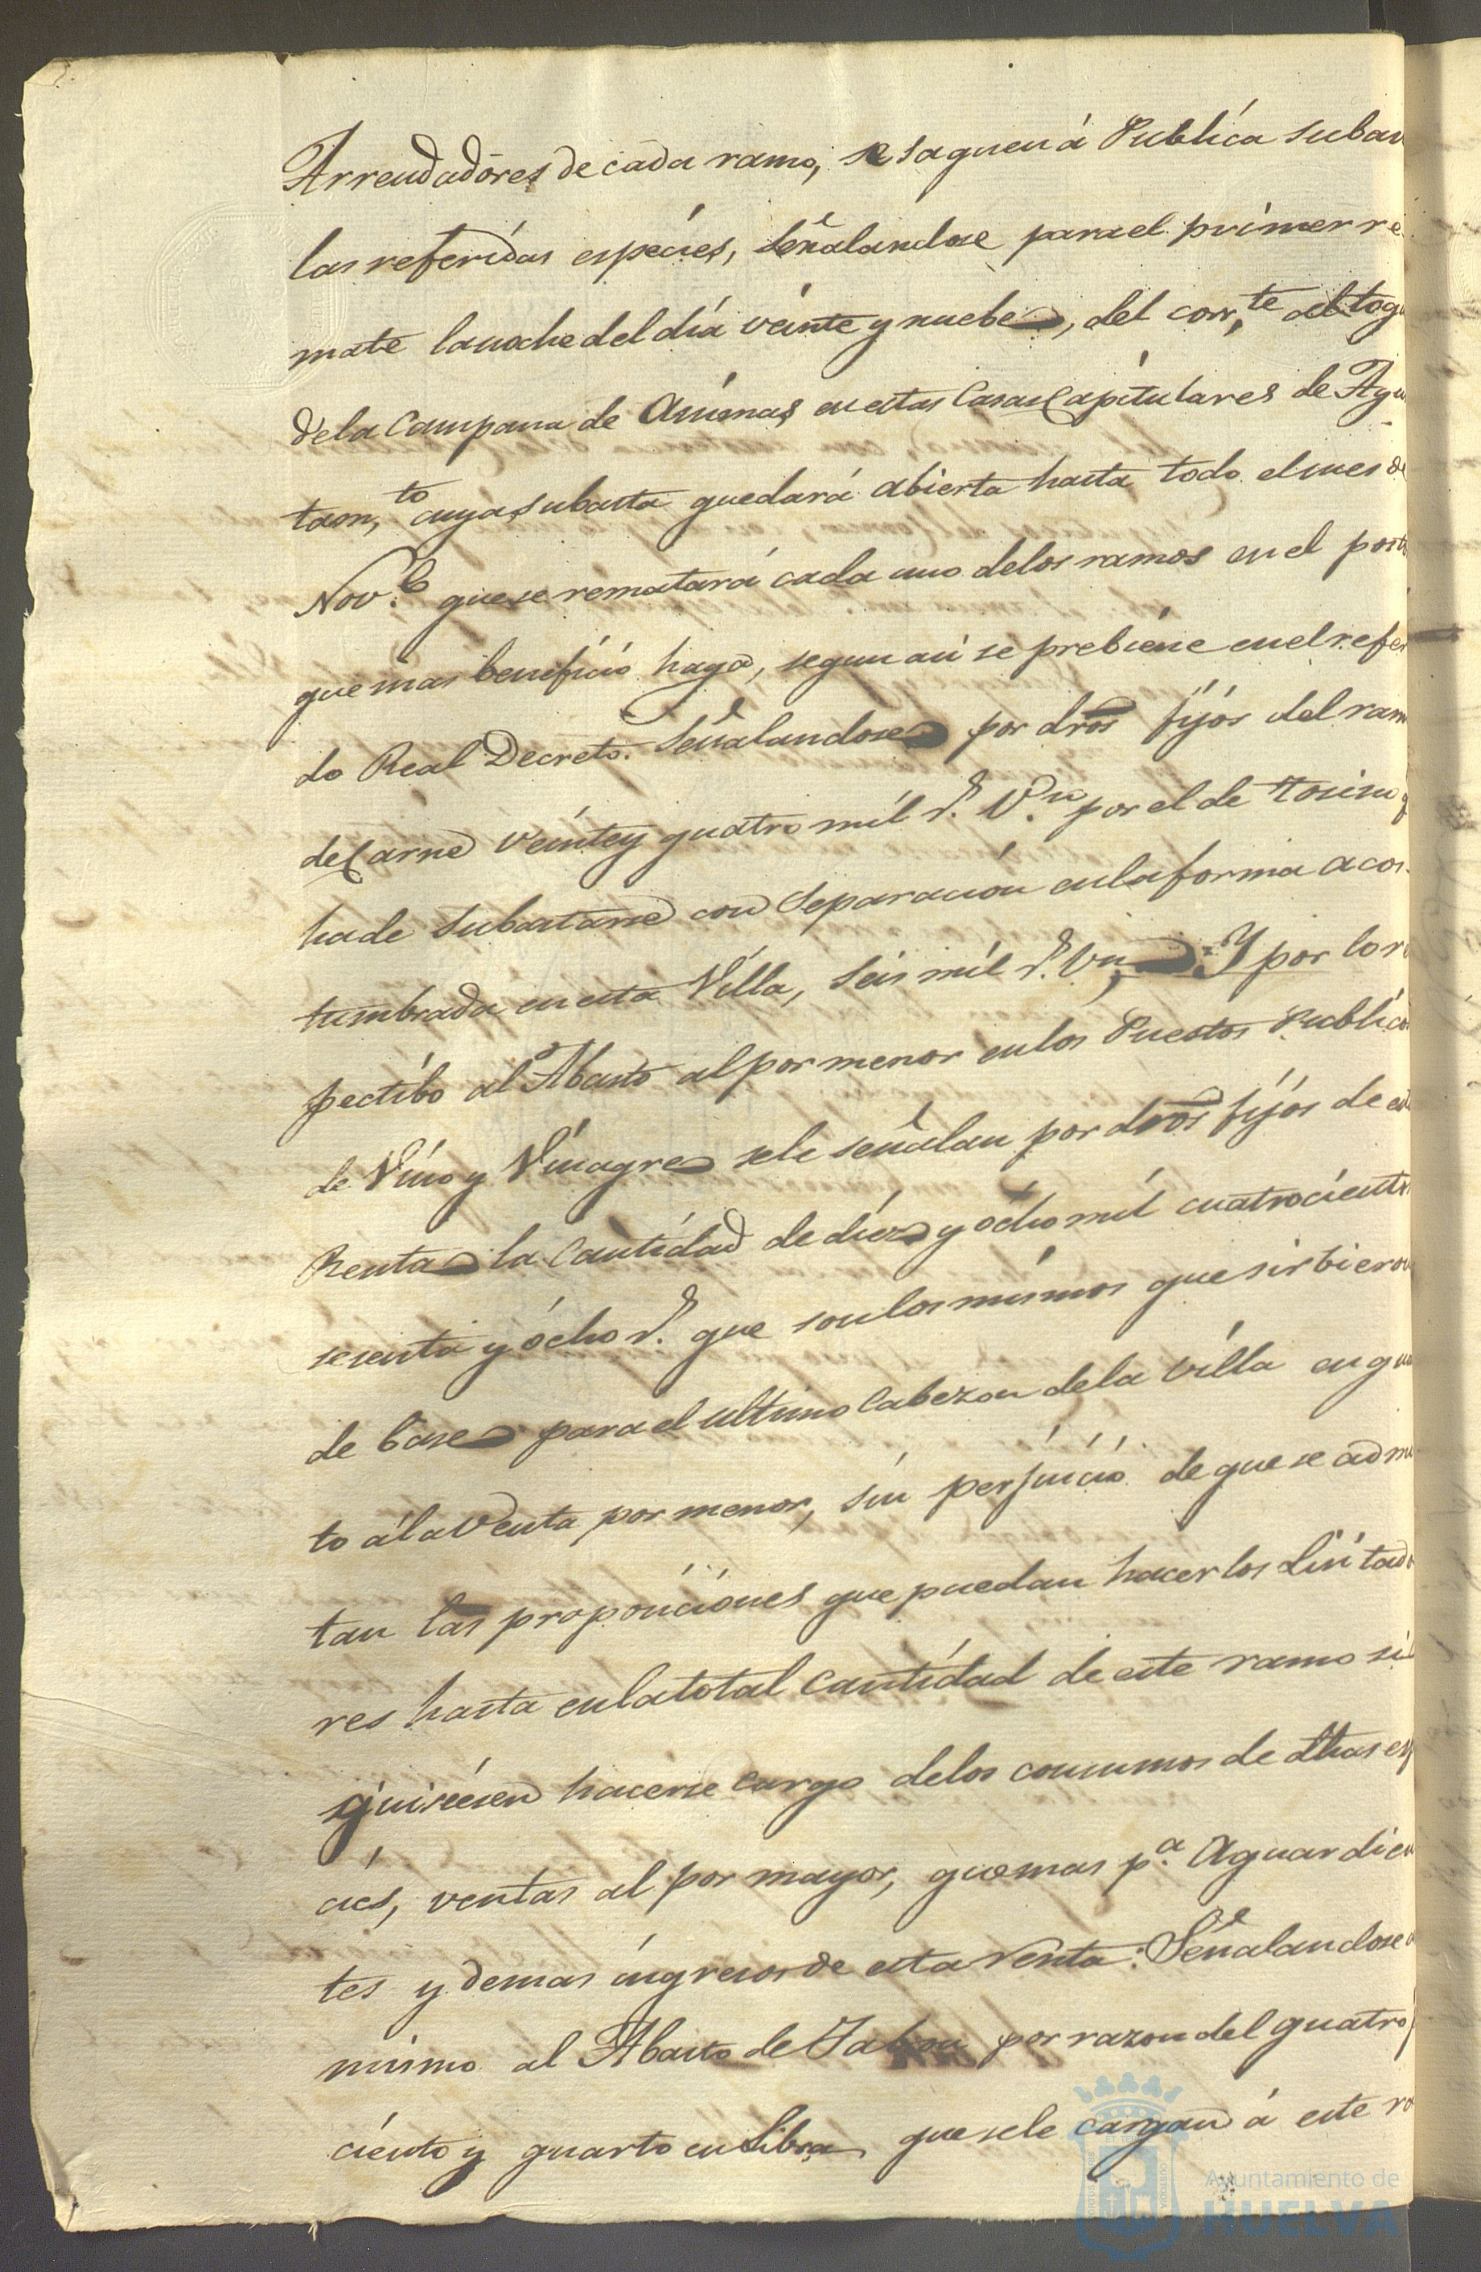 Arrendadores de cada ramo, se saquen á Publica subas
las referidas especies, señalandose para el primer re
mate la noche del dia veinte y nuebe, del corr,te al toq
de la Campana de Animas en estas Casas Capitulares de Ayu
tam,to cuya subasta quedará abierta hasta todo el mes de
Nov.e que se rematará cada uno de los ramos en el posto
que mas beneficio haga, segun asi se prebiene en el refer
do Real Decreto. Señalandose por dros fijos del ram
de Carne veinte y quatro mil r.s V.n por el de tosino q
ha de subastarse con separacion en la forma acos
tumbrada en esta Villa, seis mil r.s Vn, Y por lo r
pectibo al Abasto al por menor en los Puestos Publico
de Vino y Vinagre se le señalan por dros fijos de est
Renta la cantidad de diez y ocho mil cuatrociento
sesenta y ócho r.s que son los mismos que sirbieron
de base para el ultimo Cabezon de la Villa en qua
to á la Venta por menor, sin perjuicio de que se admi
tan las proposiciones que puedan hacer los Licitado
res hasta en la total Cantidad de este ramo si
quisiesen hacerse cargo de los consumos de dhas esp
cies, ventas al por mayor, quemas p.a Aguardien
tes y demas ingresos de esta renta: Señalandose
mismo al Abasto de Jabon por razon del quatro p
ciento y quarto en Libra que se le cargan á este ra
Ayuntamiento de
HUELVA